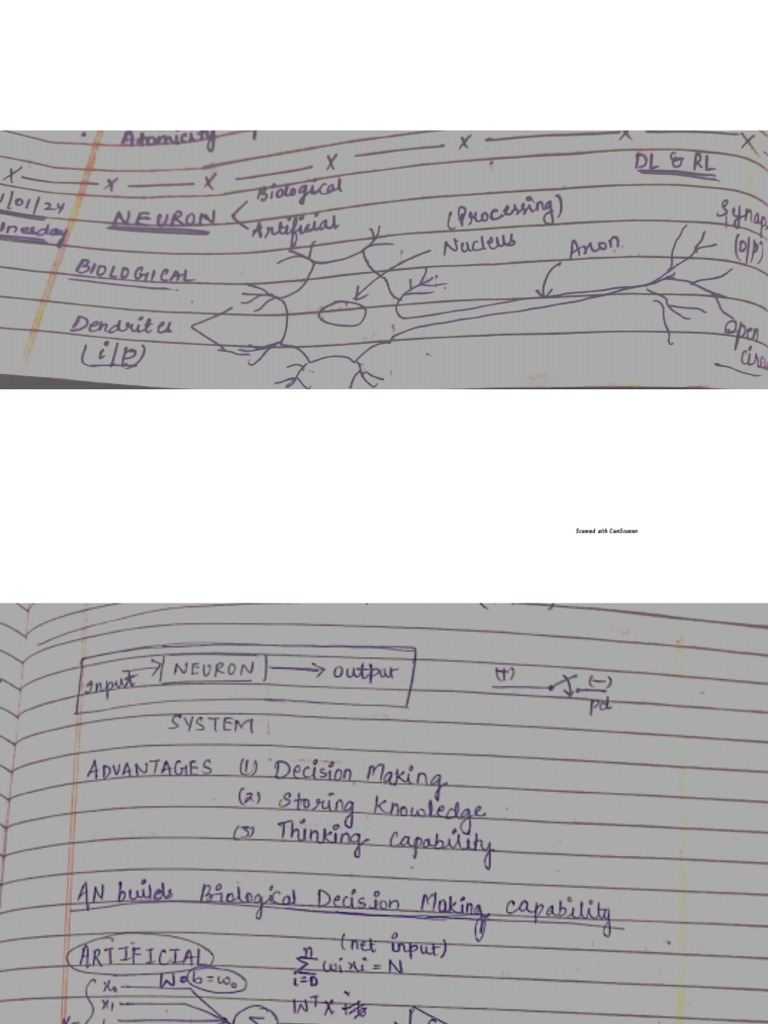 Atomicity
x x x x x x
DL & RL
/01/24
NEURON Biological
Artificial
(Processing)
Nucleus
Axon
(O/P)
BIOLOGICAL
Dendrites
(i/p)
Open
Scanned with CamScanner
Input NEURON output
(+) (-)
pd
SYSTEM
ADVANTAGES (1) Decision Making
(2) Storing Knowledge
(3) Thinking capability
AN builds Biological Decision Making capability
ARTIFICIAL
(net input)
n
∑ wixi = N
i=0
b = w0
x0
x1
WTX